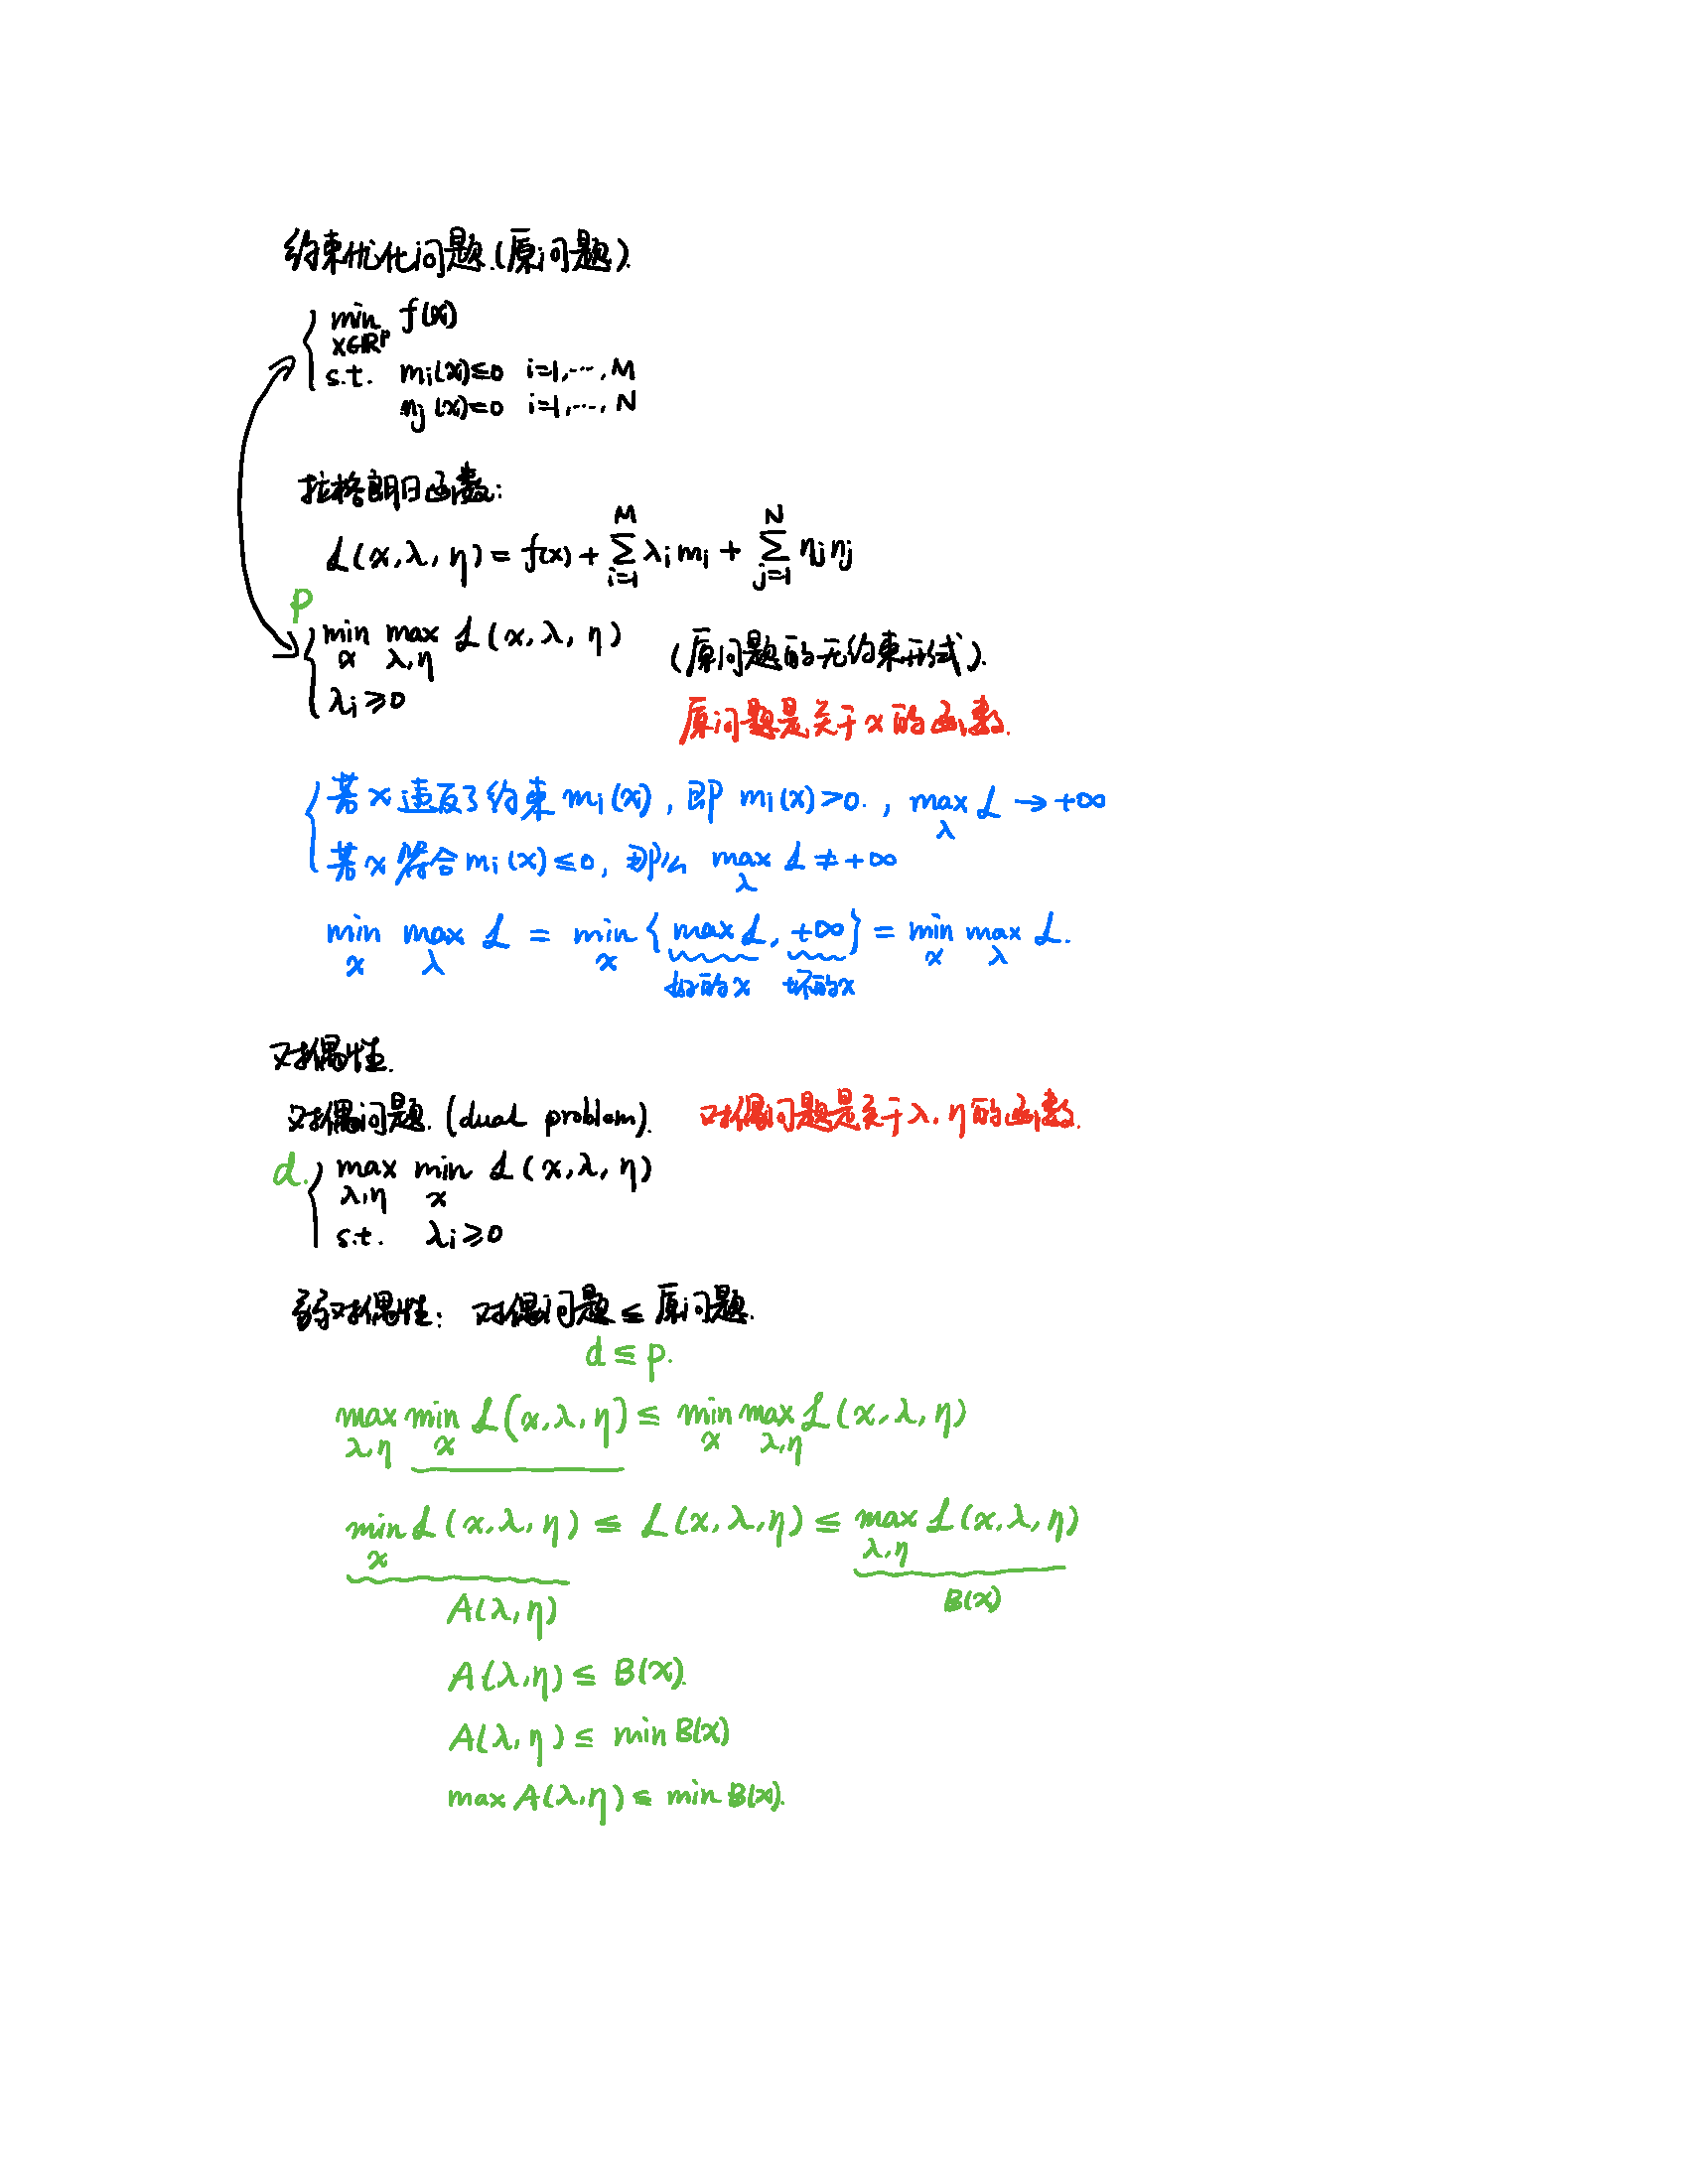 约束优化问题.(原问题).
min f(x)
x∈ℝᵖ
s.t. mᵢ(x)≤0 i=1,…,M
nⱼ(x)=0 i=1,…,N
拉格朗日函数:
ℒ(x,λ,η)=f(x)+∑_{i=1}^{M} λᵢmᵢ+∑_{j=1}^{N} ηⱼnⱼ
P
min_x max_{λ,η} ℒ(x,λ,η) (原问题的无约束形式).
λᵢ≥0 原问题是关于x的函数.
若x违反了约束mᵢ(x), 即 mᵢ(x)>0., max_λ ℒ→+∞
若x符合mᵢ(x)≤0, 那么 max_λ ℒ≠+∞
min_x max_λ ℒ = min_x{max ℒ, +∞} = min_x max_λ ℒ.
好的x 坏的x
对偶性.
对偶问题.(dual problem). 对偶问题是关于λ,η的函数.
d. max_{λ,η} min_x ℒ(x,λ,η)
s.t. λᵢ≥0
弱对偶性: 对偶问题≤原问题.
d≤p.
max_{λ,η} min_x ℒ(x,λ,η)≤min_x max_{λ,η} ℒ(x,λ,η)
min_x ℒ(x,λ,η)≤ℒ(x,λ,η)≤max_{λ,η} ℒ(x,λ,η)
A(λ,η) B(x)
A(λ,η)≤B(x).
A(λ,η)≤min B(x)
max A(λ,η)≤min B(x).